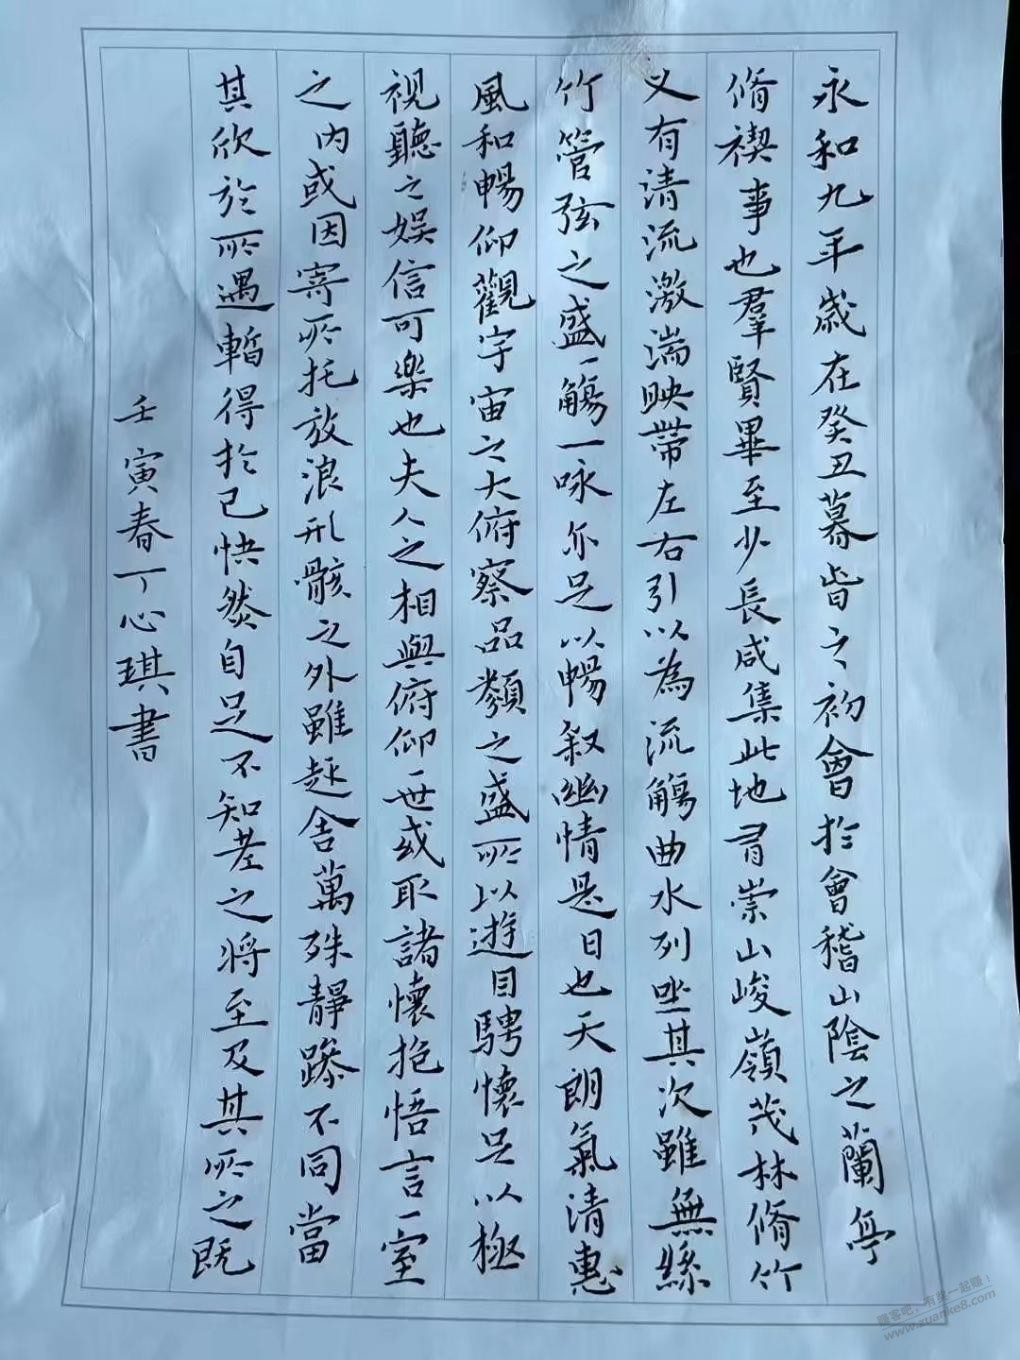 永和九年歲在癸丑暮春之初會於會稽山陰之蘭亭
脩禊事也羣賢畢至少長咸集此地有崇山峻嶺茂林脩竹
又有清流激湍映帶左右引以為流觴曲水列坐其次雖無絲
竹管弦之盛一觴一咏亦足以暢叙幽情是日也天朗氣清惠
風和暢仰觀宇宙之大俯察品類之盛所以遊目騁懷足以極
視聽之娱信可樂也夫人之相與俯仰一世或取諸懷抱悟言一室
之内或因寄所托放浪形骸之外雖趣舍萬殊靜躁不同當
其欣於所遇暫得於己快然自足不知老之將至及其所之既
壬寅春丁心琪書
赚客吧，有奖一起赚！
www.zuanke8.com